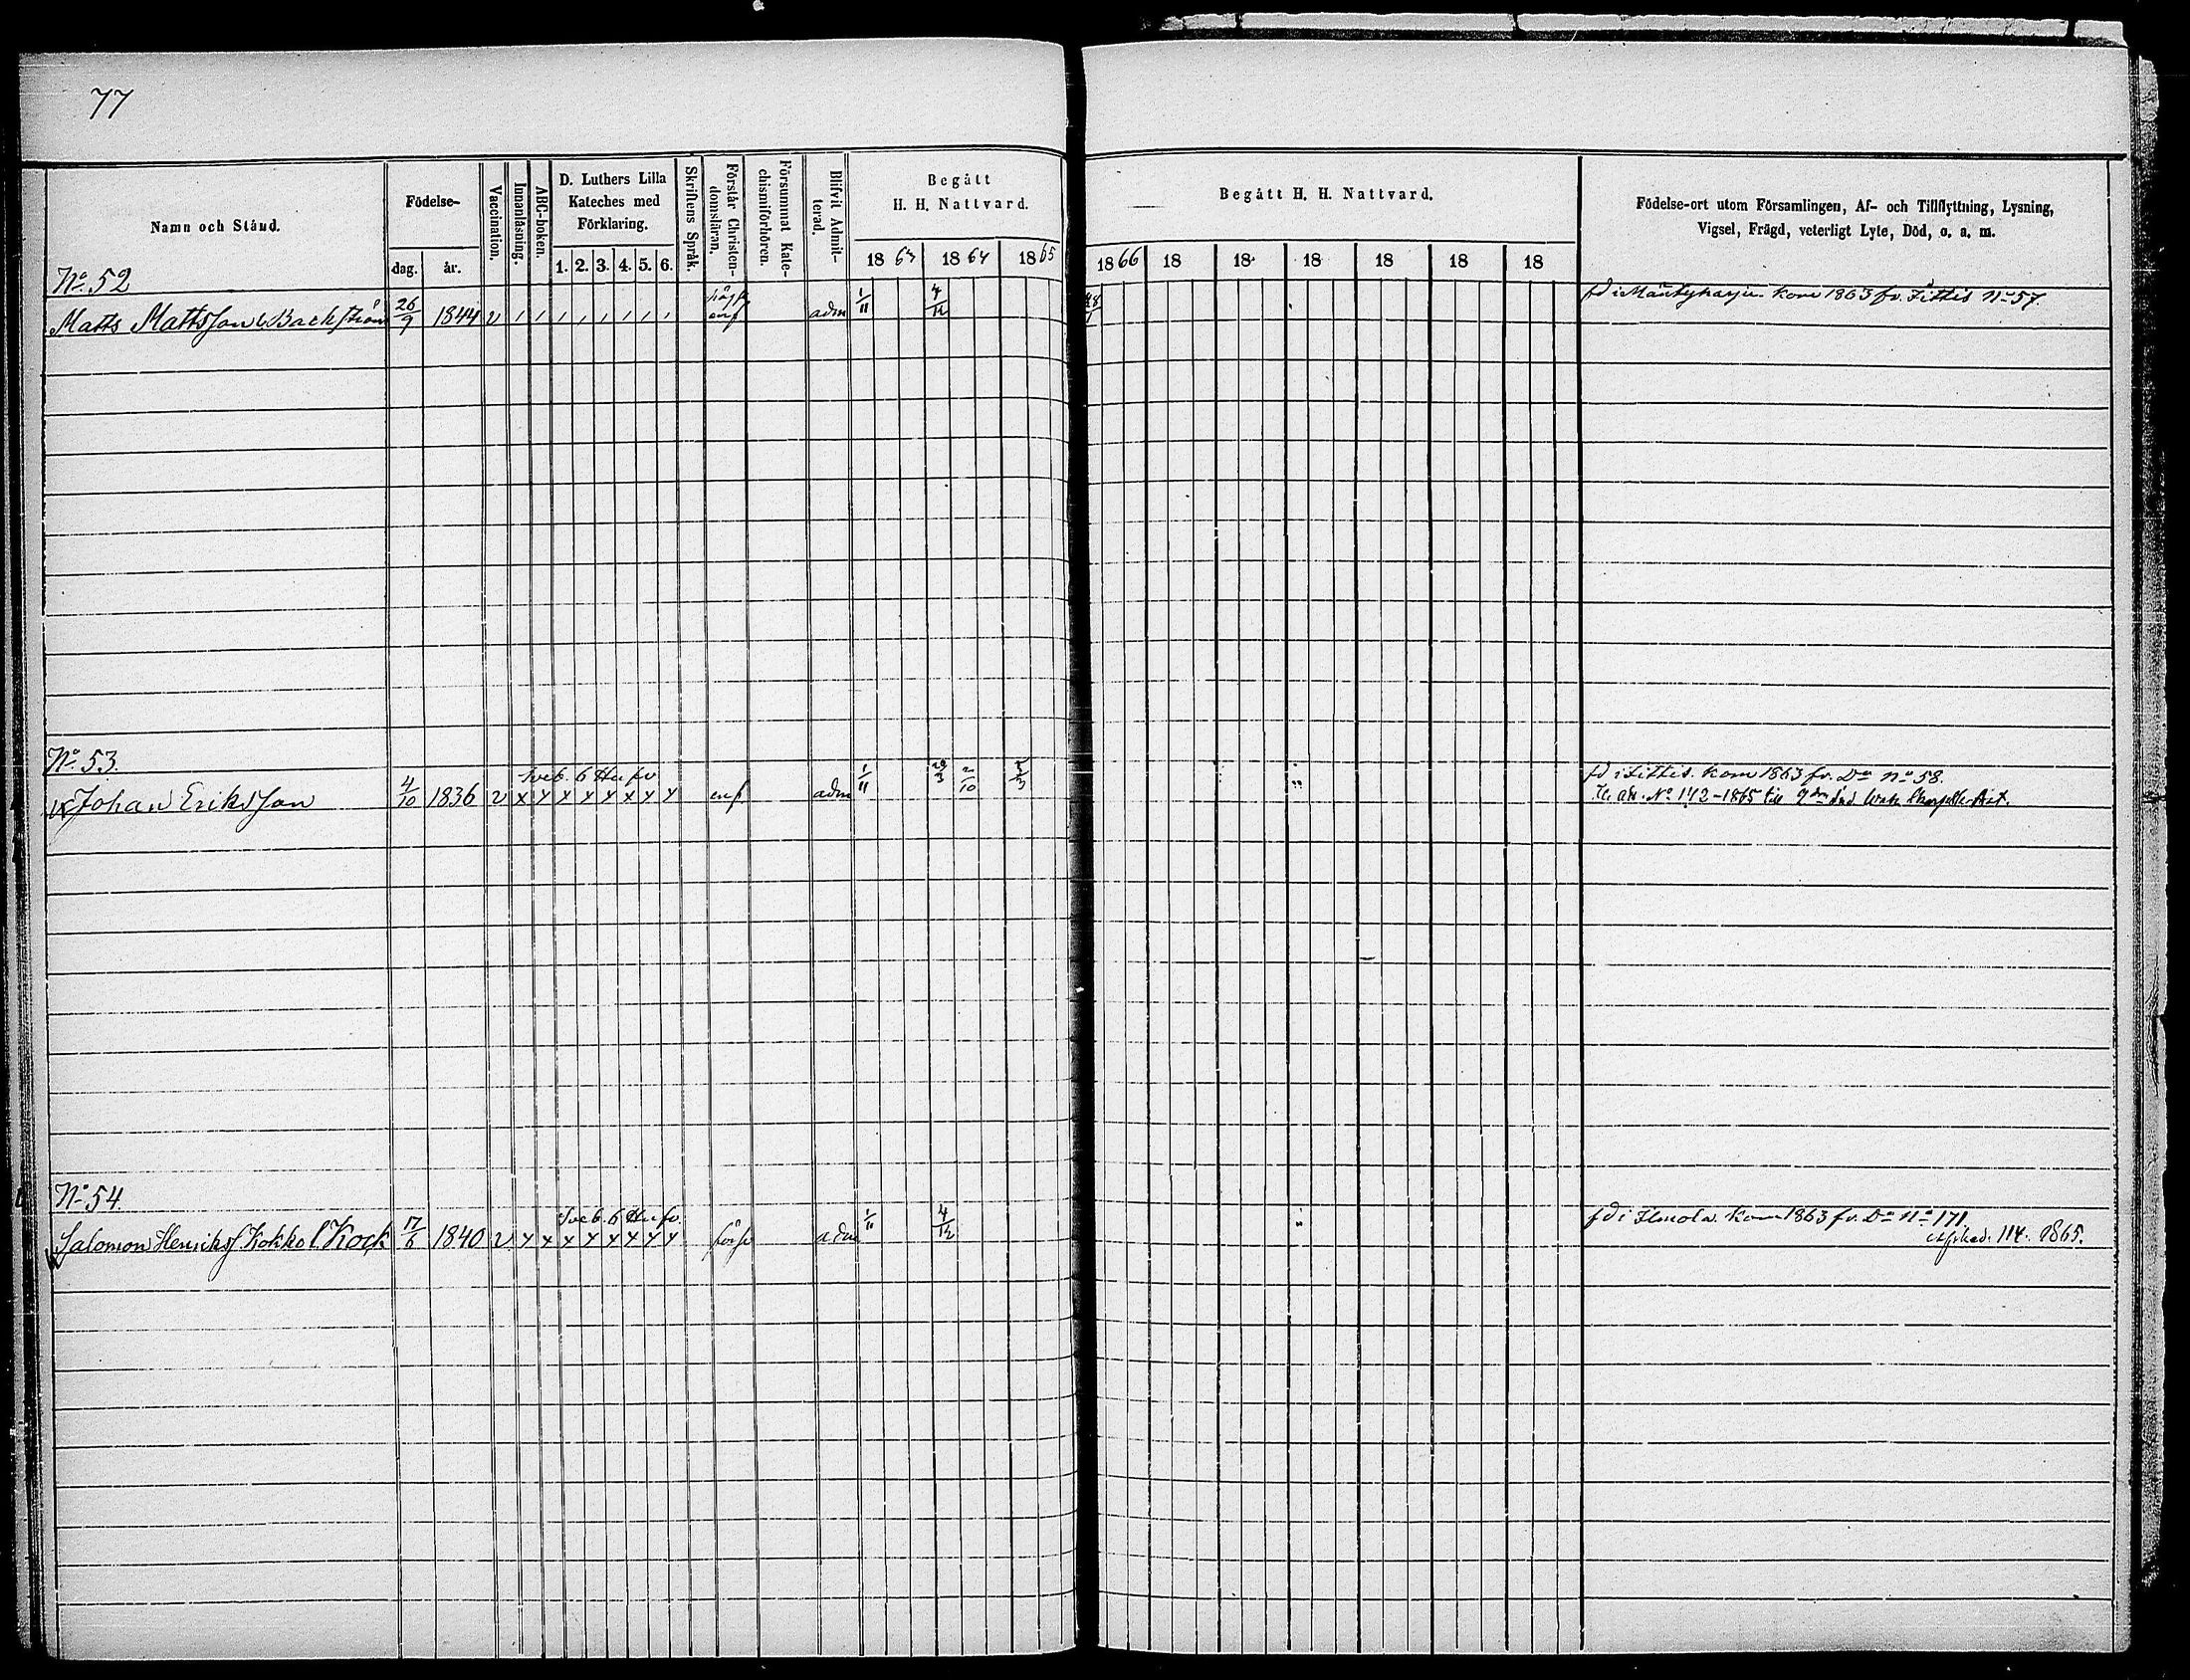 77
Namn och Stånd.
Födelse-
dag.
år.
Vaccination.
Innanläsning.
ABC-boken.
D. Luthers Lilla
Kateches med
Förklaring.
1. 2. 3. 4. 5. 6.
Skriftens Språk.
Förstår Christen-
domsläran.
Försummat Kate-
chismiförhören.
Blifvit Admit-
terad.
Begått
H. H. Nattvard.
18 63 18 64 18 65
Begått H. H. Nattvard.
18 66 18 18 18 18 18 18
Födelse-ort utom Församlingen, Af- och Tillflyttning, Lysning,
Vigsel, Frägd, veterligt Lyte, Död, o. a. m.
No 52
Matts Mattsson Backström 26/9 1844 v enf adm 1/11 4/12
fd i Mäntyharju kom 1863 fr. Sittis No 57.
No 53.
Sveb. 6 Hufv
Johan Eriksson 4/10 1836 v x x x x x x x x enf adm 1/11 2/10
fd i Sittis. kom 1863 fr. Do No 58.
No 142-1865 till
No 54.
Sveb. 6 Hufv.
Salomon Henrikss Kokko l Kock 17/6 1840 v x x x x x x x x adm 1/11 4/12
fd i Ilmola. kom 1863 fr. Do No 171
114. 1865.